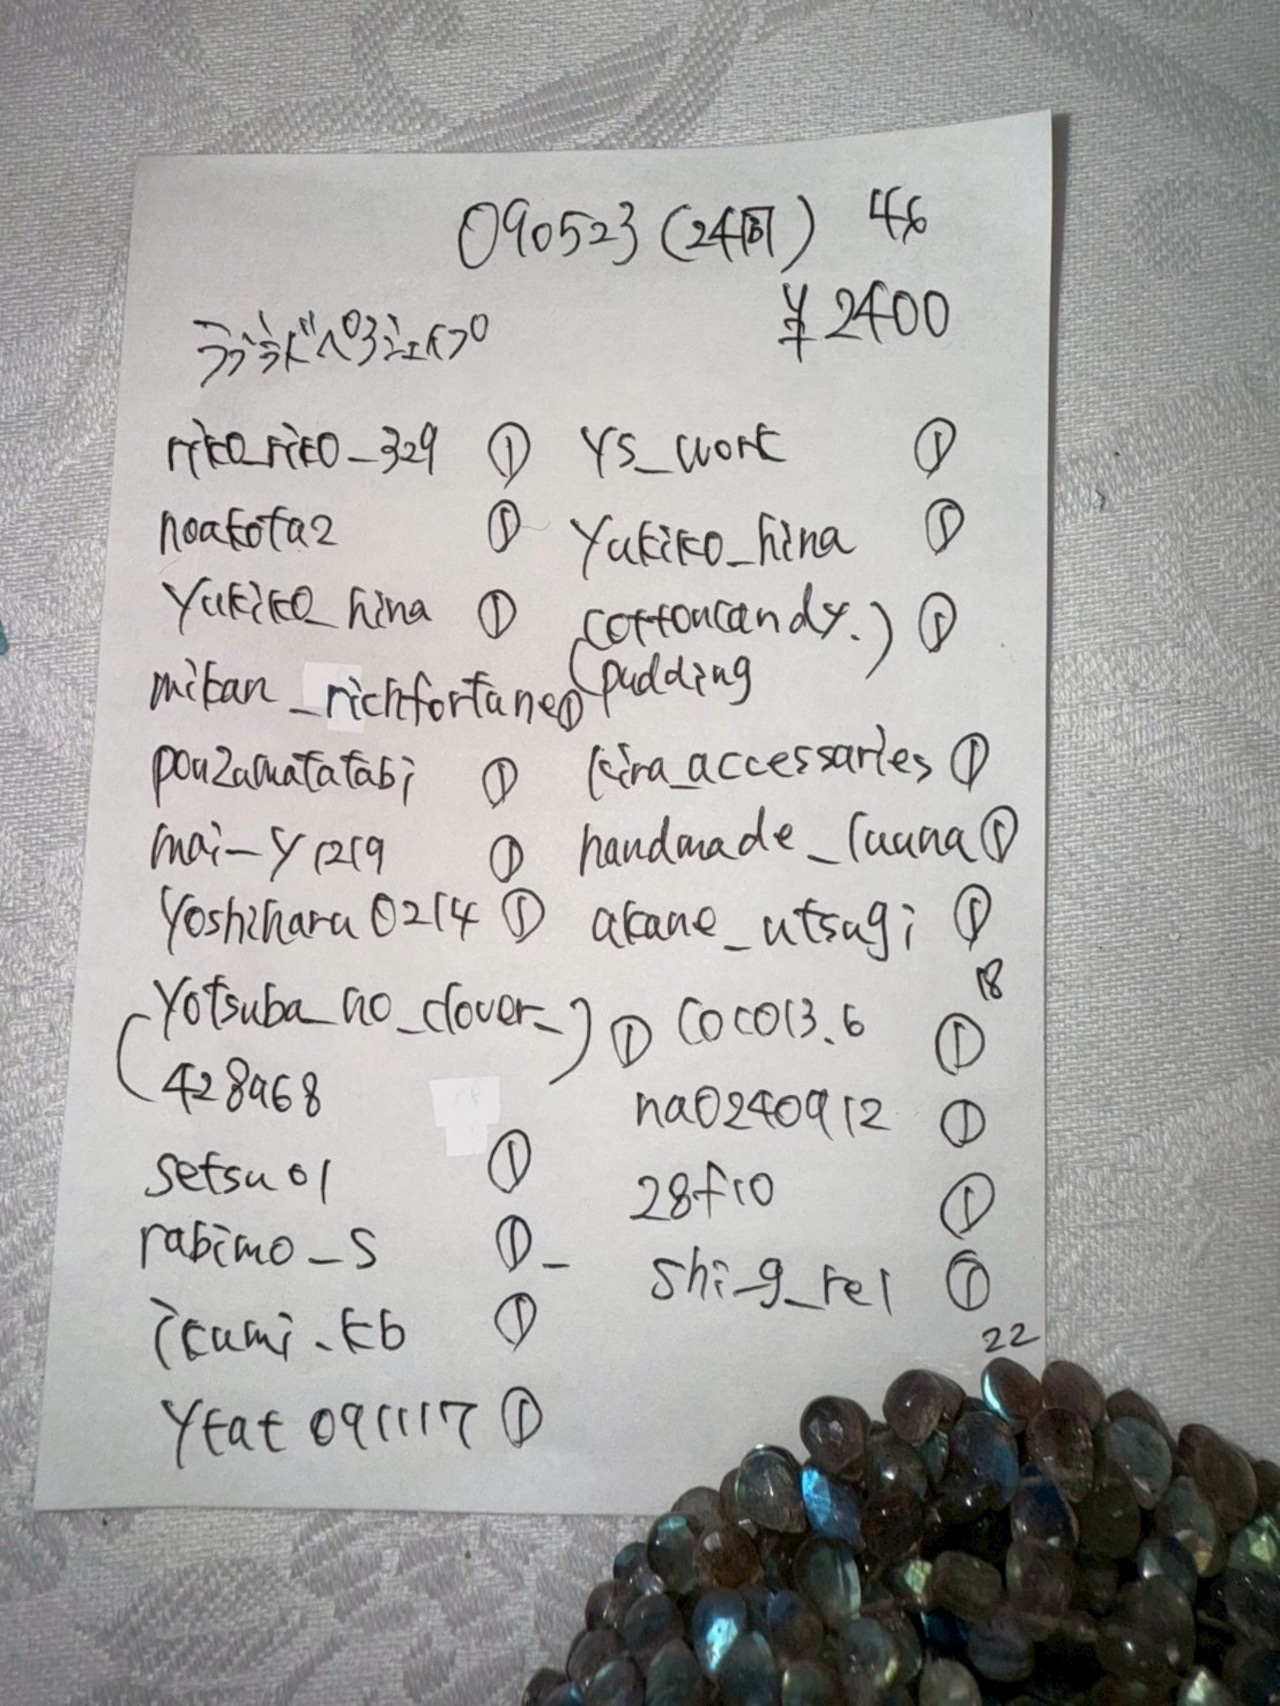 090523 (24個) 46
¥2400
ラブラドペアシェイプ
riko_riko_329 ①
noakota2 ①
yukiko_hina ①
mikan_richfortune ①
pouzamatatabi ①
mai-y1219 ①
yoshiharu0214 ①
(yotsuba_no_clover_
428968) ①
setsu01 ①
rabimo_s ①_
ikumi.kb ①
ytat091117 ①
ys_work ①
yukiko_hina ①
(cottoncandy.
pudding) ①
kira_accessaries ①
handmade_luuna ①
akane_utsugi ①
18
coco13.6 ①
na0240912 ①
28f10 ①
shi_g_rel ①
22